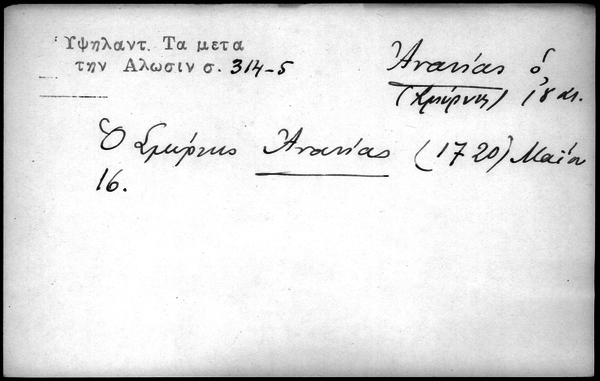 Ὑψηλαντ. Τα μετα
την Αλωσιν σ. 314-5
Ἀνανίας ὁ
(Σμύρνης) 18 αι.
Ὁ Σμύρνης Ἀνανίας (1720) Μαΐου
16.